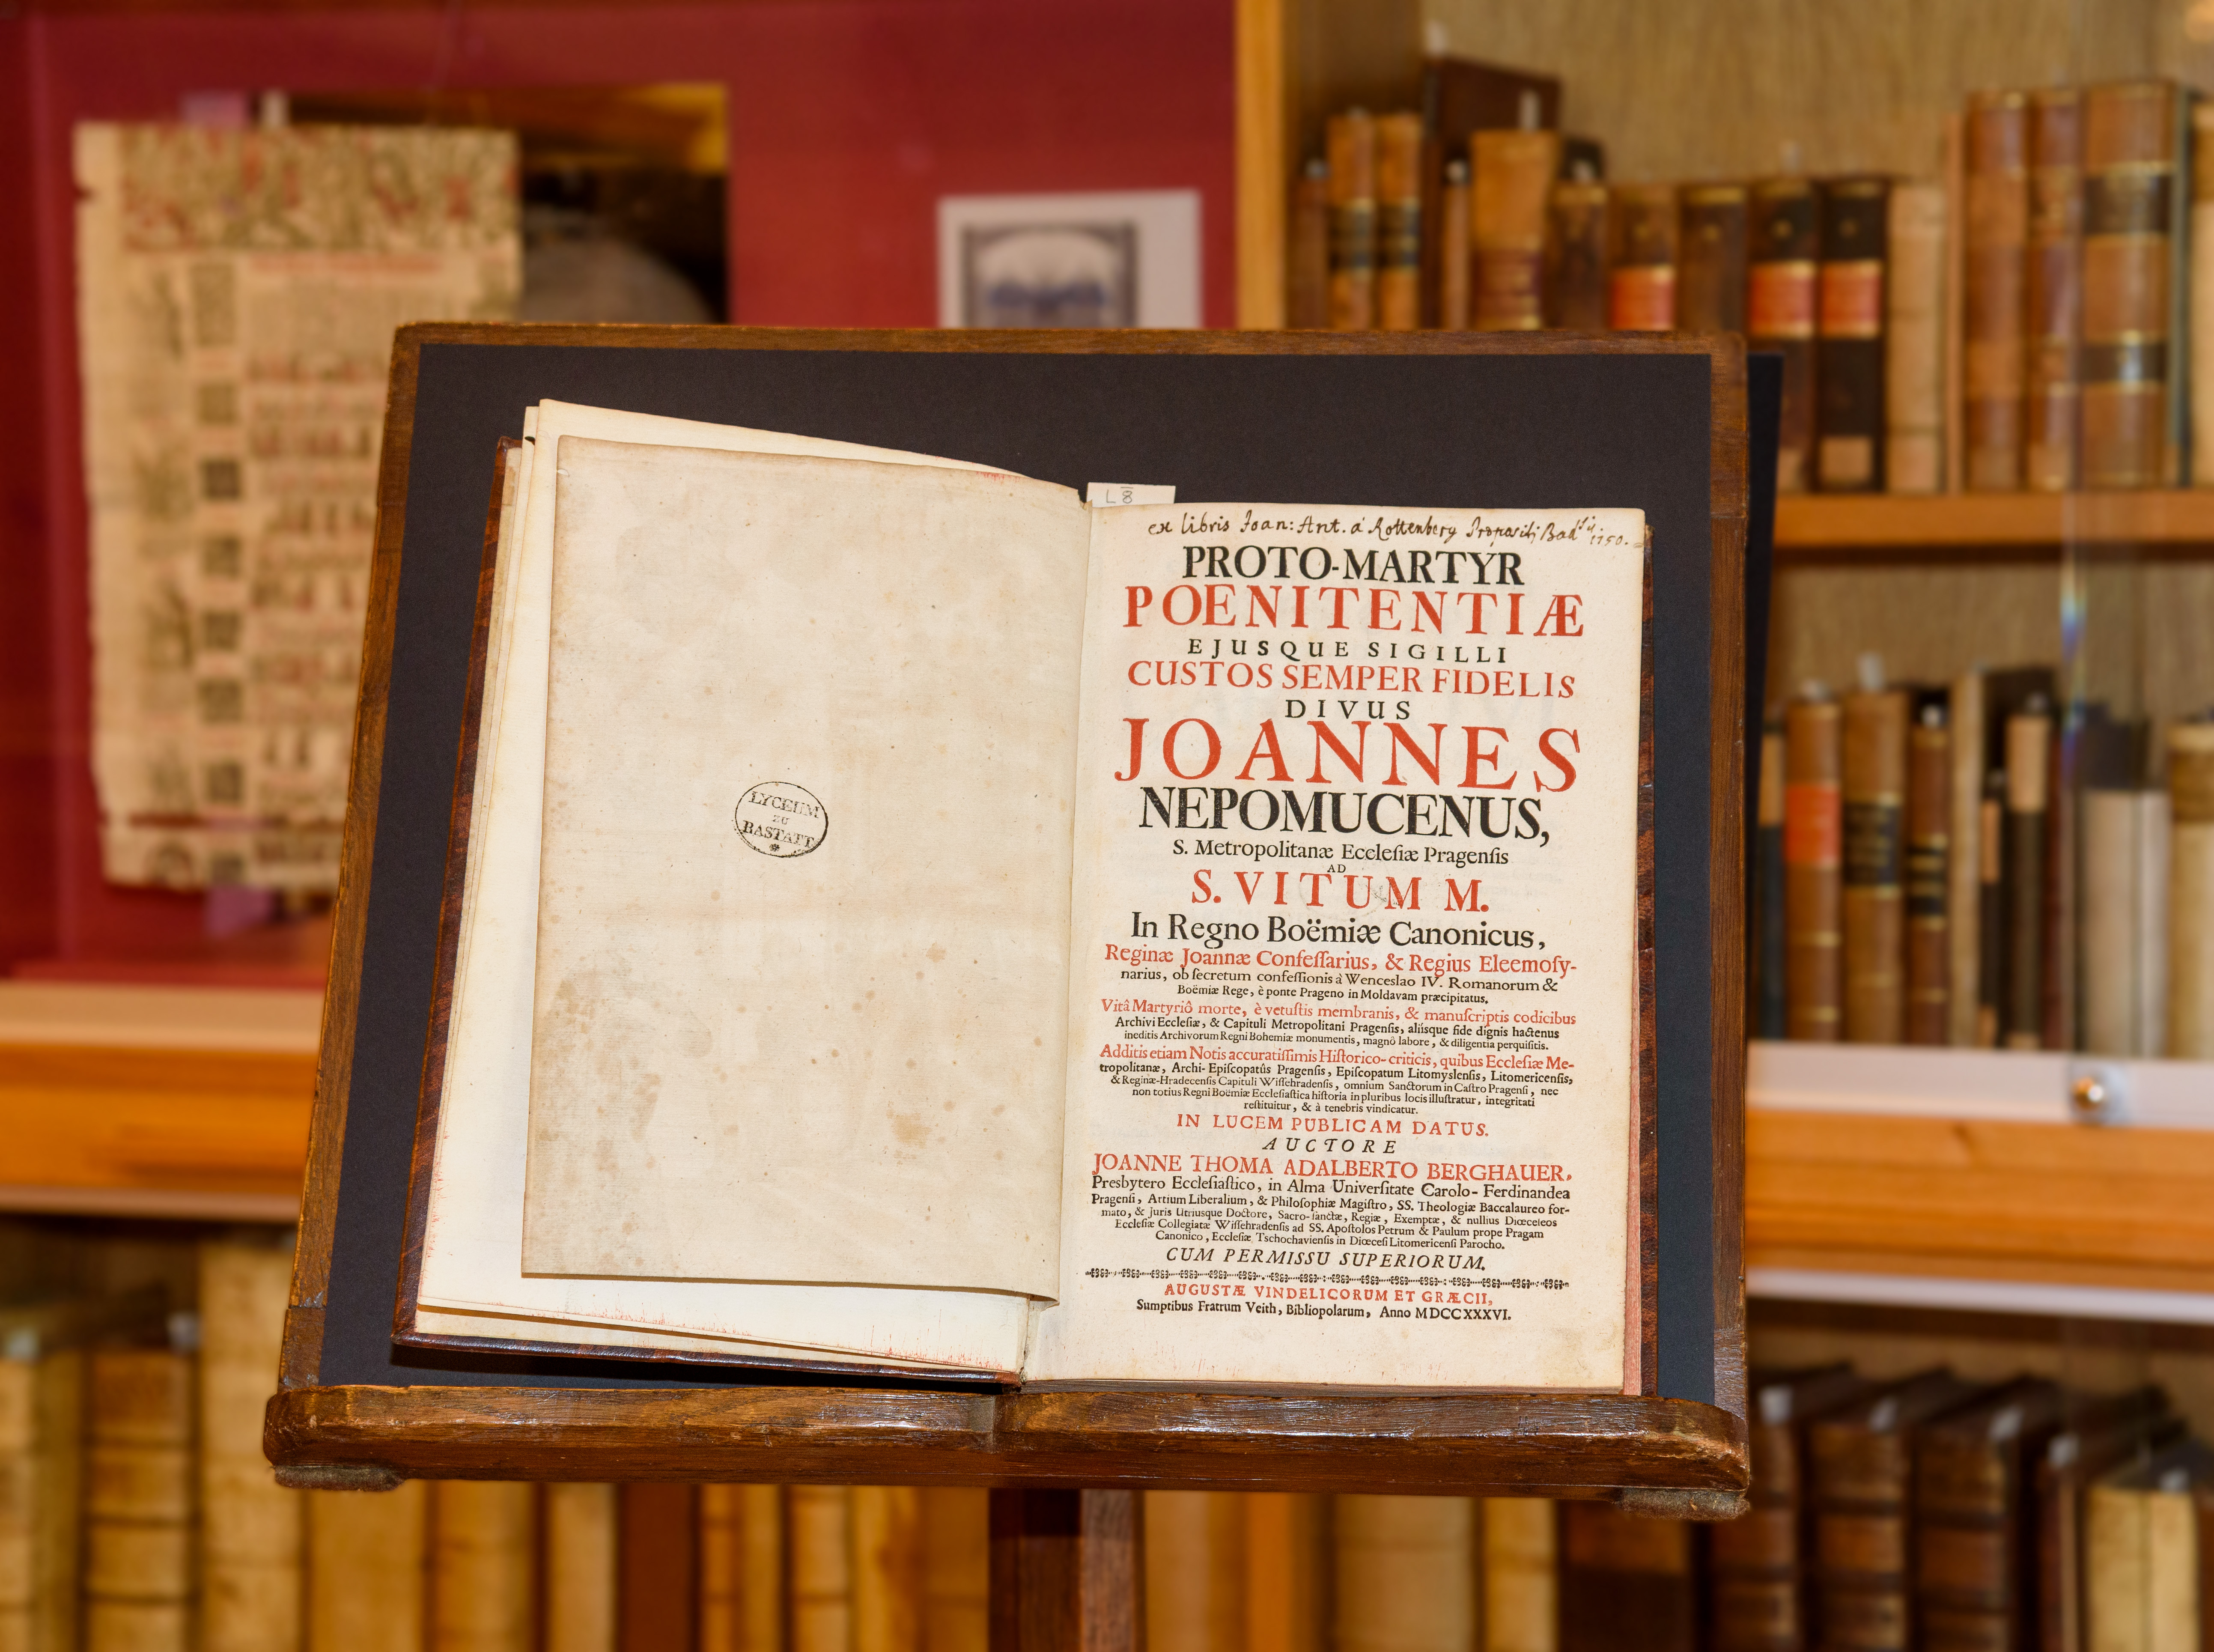 LYCEUM
ZU
RASTATT
L 8
ex libris Joan: Ant. á Rottenberg Propositj Bad 1750.
PROTO-MARTYR
POENITENTIÆ
EJUSQUE SIGILLI
CUSTOS SEMPER FIDELIS
DIVUS
JOANNES
NEPOMUCENUS,
S. Metropolitanæ Eccleſiæ Pragenſis
AD
S. VITUM M.
In Regno Boëmiæ Canonicus,
Reginæ Joannæ Confeſſarius, & Regius Eleemoſy-
narius, ob ſecretum confeſſionis à Wenceslao IV. Romanorum &
Boëmiæ Rege, è ponte Prageno in Moldavam præcipitatus.
Vitâ Martyriô morte, è vetuſtis membranis, & manuſcriptis codicibus
Archivi Eccleſiæ, & Capituli Metropolitani Pragenſis, aliisque fide dignis hactenus
ineditis Archivorum Regni Bohemiæ monumentis, magnô labore, & diligentia perquiſitis.
Additis etiam Notis accuratiſſimis Hiſtorico-criticis, quibus Eccleſiæ Me-
tropolitanæ, Archi-Epiſcopatûs Pragenſis, Epiſcopatum Litomyslenſis, Litomericenſis,
& Reginæ-Hradecenſis Capituli Wiſſehradenſis, omnium Sanctorum in Caſtro Pragenſi, nec
non totius Regni Boëmiæ Eccleſiaſtica hiſtoria in pluribus locis illuſtratur, integritati
reſtituitur, & à tenebris vindicatur.
IN LUCEM PUBLICAM DATUS.
AUCTORE
JOANNE THOMA ADALBERTO BERGHAUER,
Presbytero Eccleſiaſtico, in Alma Univerſitate Carolo-Ferdinandea
Pragenſi, Artium Liberalium, & Philoſophiæ Magiſtro, SS. Theologiæ Baccalaureo for-
mato, & Juris Utriusque Doctore, Sacro-ſanctæ, Regiæ, Exemptæ, & nullius Diœceſeos
Eccleſiæ Collegiatæ Wiſſehradenſis ad SS. Apoſtolos Petrum & Paulum prope Pragam
Canonico, Eccleſiæ Tschochavienſis in Diœceſi Litomericenſi Parocho.
CUM PERMISSU SUPERIORUM.
AUGUSTÆ VINDELICORUM ET GRÆCII,
Sumptibus Fratrum Veith, Bibliopolarum, Anno MDCCXXXVI.